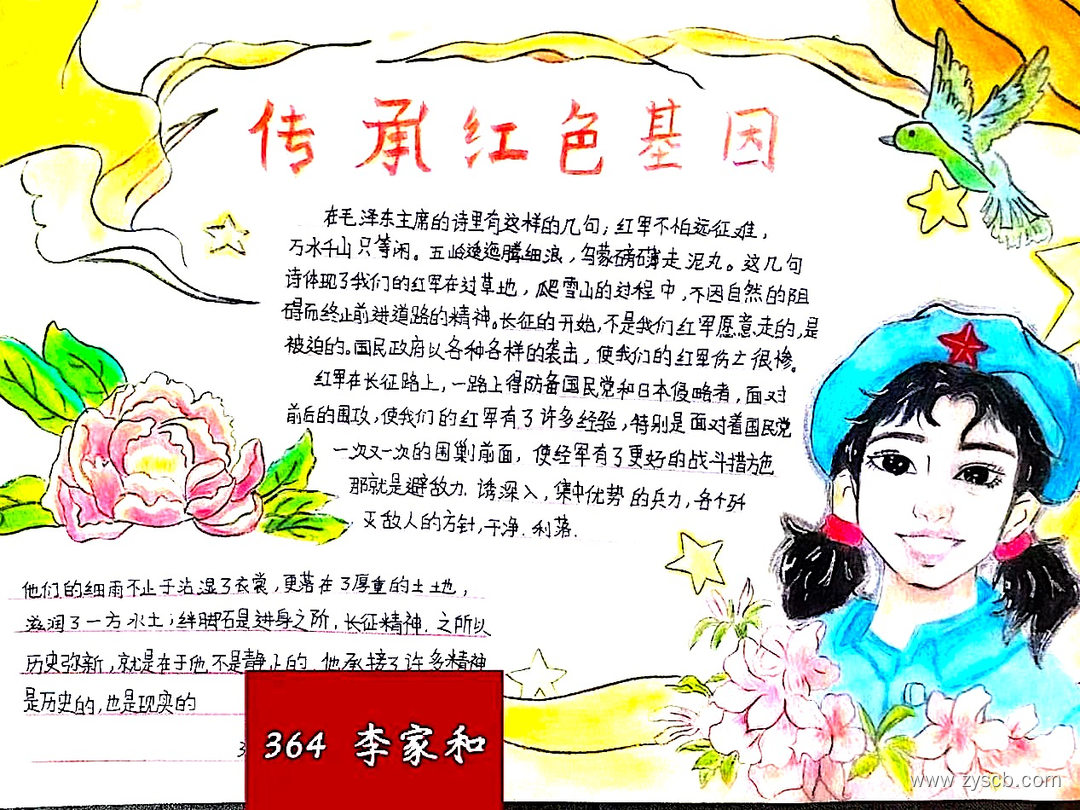 传承红色基因
在毛泽东主席的诗里有这样的几句；红军不怕远征难，
万水千山只等闲。五岭逶迤腾细浪，乌蒙磅礴走泥丸。这几句
诗体现了我们的红军在过草地，爬雪山的过程中，不因自然的阻
碍而终止前进道路的精神。长征的开始，不是我们红军愿意走的，是
被迫的。国民政府以各种各样的袭击，使我们的红军伤亡很惨。
红军在长征路上，一路上得防备国民党和日本侵略者，面对
前后的围攻，使我们的红军有了许多经验，特别是面对着国民党
一次又一次的围剿前面，使经军有了更好的战斗措施
那就是避敌力.诱深入，集中优势的兵力，各个歼
灭敌人的方针，干净.利落.
他们的细雨不止于沾湿了衣裳，更落在了厚重的土地，
滋润了一方水土；绊脚石是进身之阶，长征精神.之所以
历史弥新，就是在于他不是静止的.他承接了许多精神
是历史的，也是现实的
364 李家和
www.zyscb.com